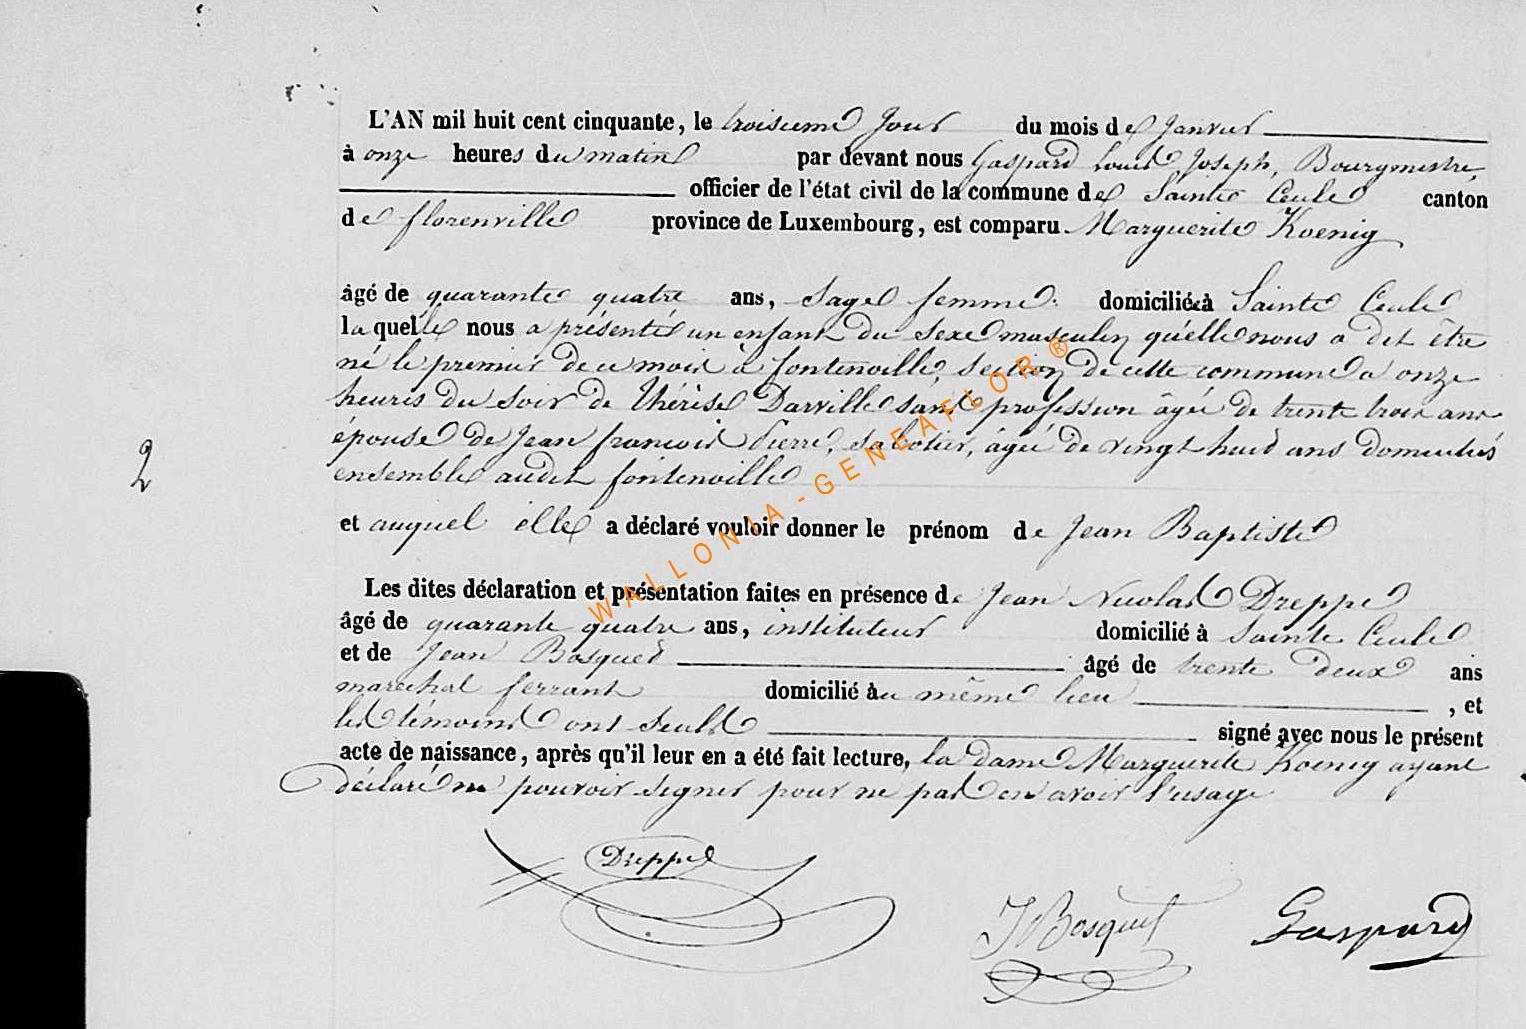 L'AN mil huit cent cinquante, le troisieme Jour du mois de Janvier
à onze heures du matin par devant nous Gaspard Louis Joseph, Bourgmestre,
officier de l'état civil de la commune de Sainte Cecile canton
de florenville province de Luxembourg, est comparu Marguerite Koenig
âgé de quarante quatre ans, sage femme domiciliée à Sainte Cecile
laquelle nous a présenté un enfant du sexe masculin qu'elle nous a dit être
né le premier de ce mois à fontenoille, section de cette commune à onze
heures du soir de Thérèse Darville sans profession âgée de trente trois ans
épouse de Jean françois Pierre, sabotier, âgé de vingt huit ans domiciliés
ensemble audit fontenoille
et auquel elle a déclaré vouloir donner le prénom de Jean Baptiste
Les dites déclaration et présentation faites en présence de Jean Nicolas Dreppe
âgé de quarante quatre ans, instituteur domicilié à Sainte Cecile
et de Jean Bosquet âgé de trente deux ans
marechal ferrant domicilié au même lieu , et
les témoins ont seuls signé avec nous le présent
acte de naissance, après qu'il leur en a été fait lecture, la dame Marguerite Koenig ayant
déclaré ne pouvoir signer pour ne pas en avoir l'usage
2
Dreppe
J Bosquet
Gaspard
WALLONIA-GENEAFLOR®